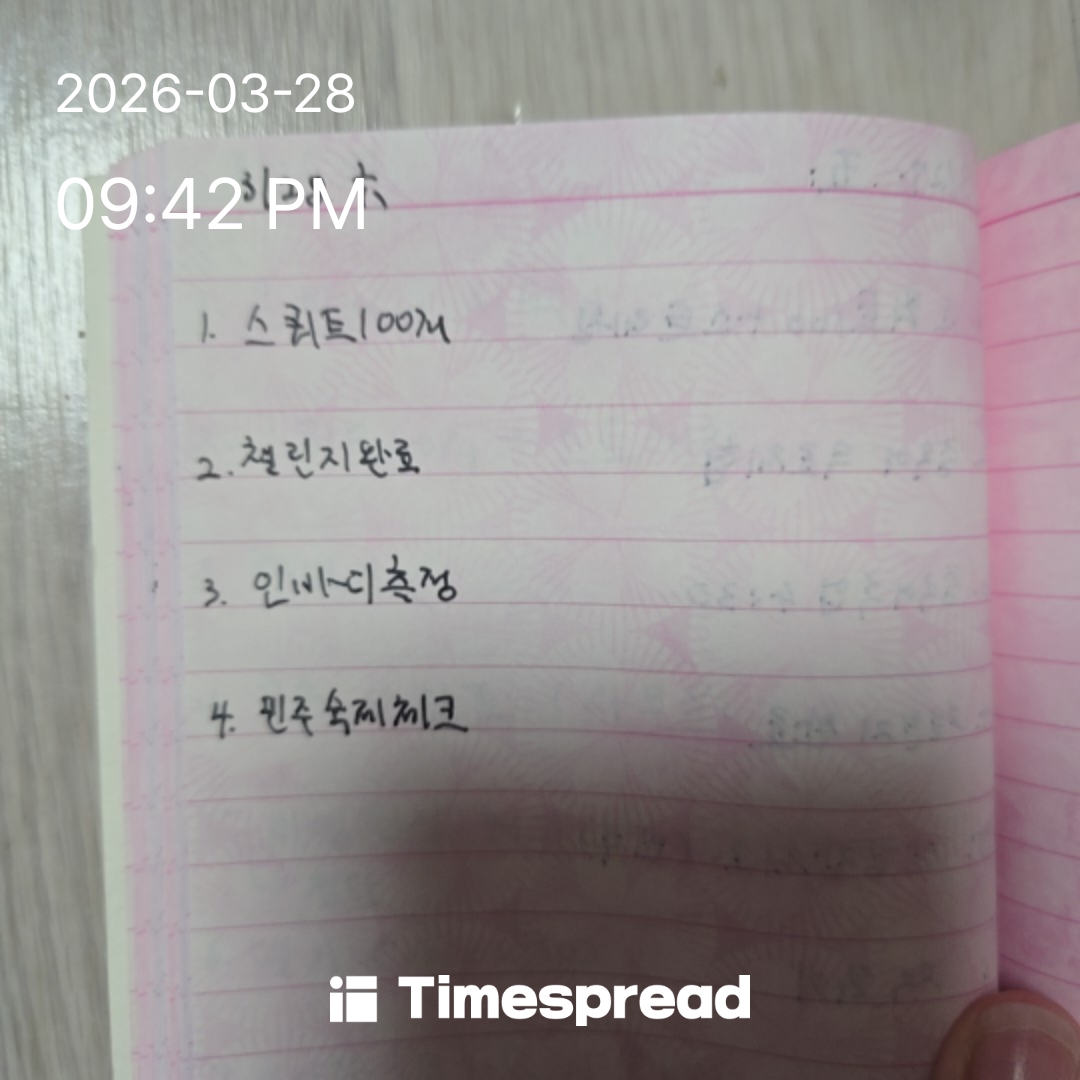 2026-03-28
09:42 PM
3/28 六
1. 스쿼트100개
2. 챌린지완료
3. 인바디측정
4. 민주숙제체크
Timespread